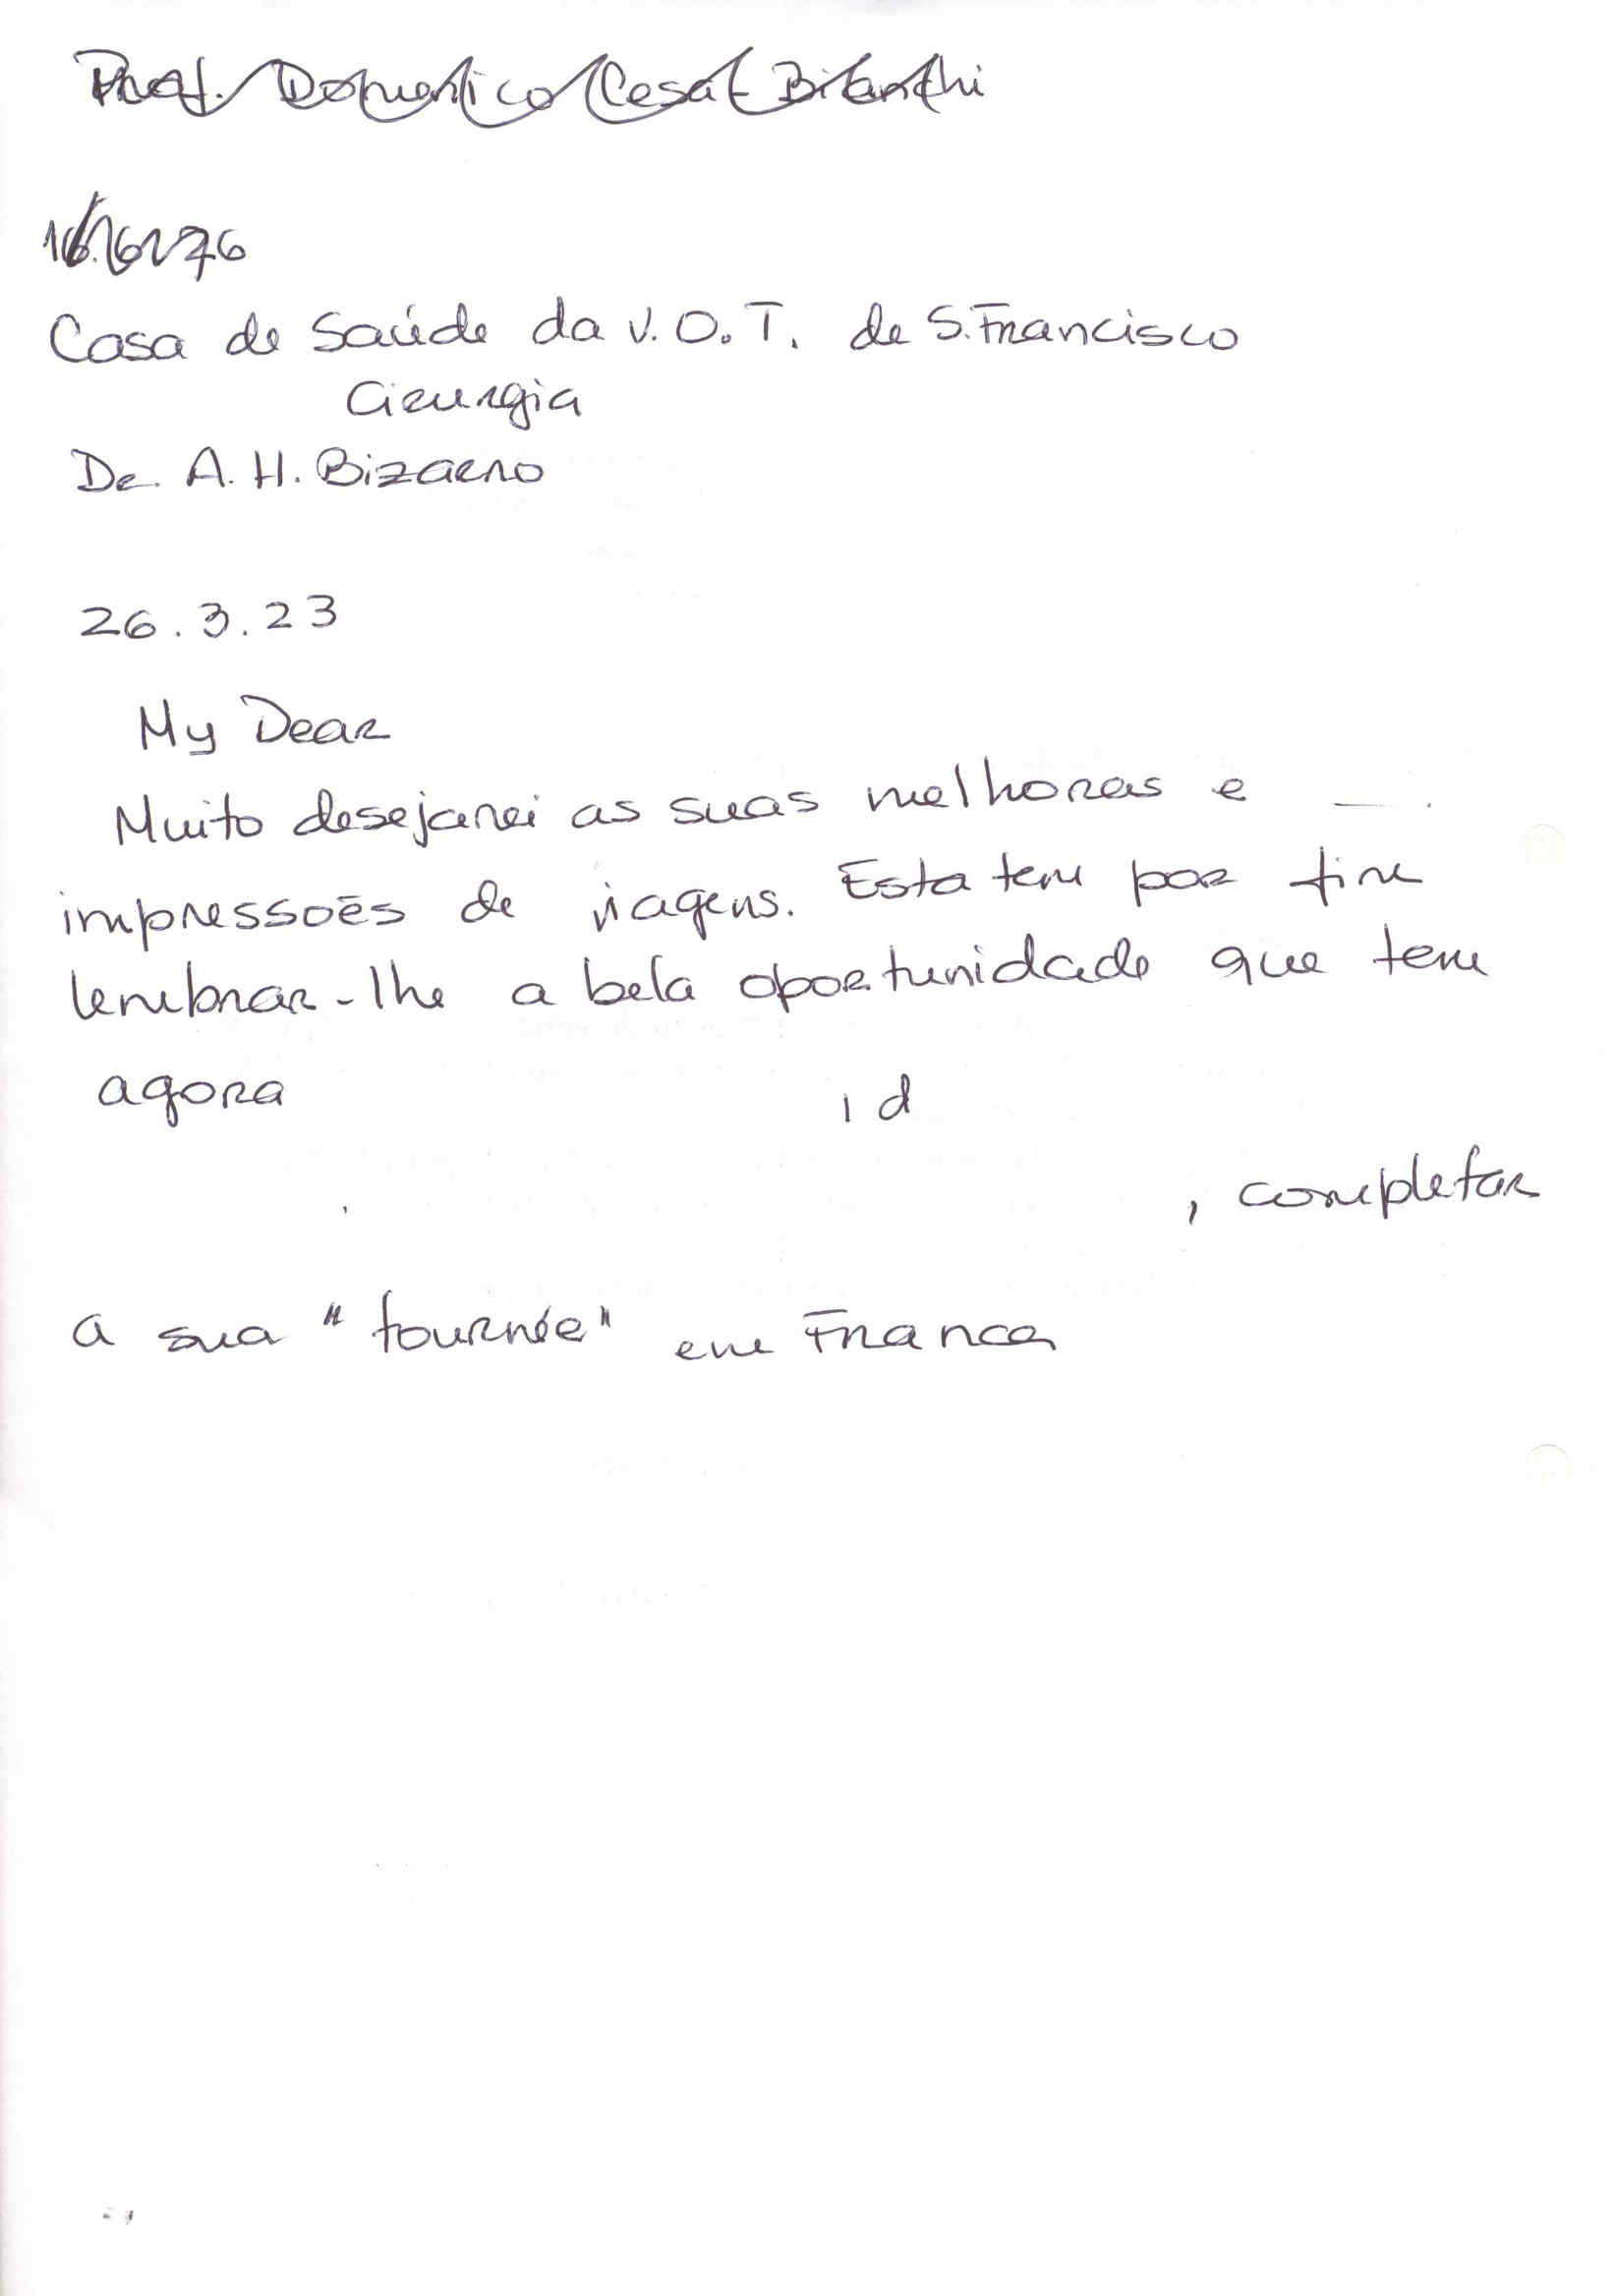 Prof. Domenico Cesar Bianchi
16.6.76
Casa de Saúde da V.O.T. de S. Francisco
Cirurgia
Dr. A. H. Bizarro
26.3.23
My Dear
Muito desejarei as suas melhoras e __ .
impressões de viagens. Esta tem por fim
lembrar-lhe a bela oportunidade que tem
agora i d
, completar
a sua "tournée" em França